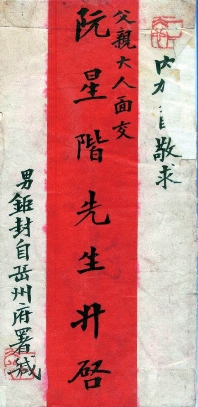 敬求
父親大人面交
阮星階先生升啓
男鉅封自岳州府署緘